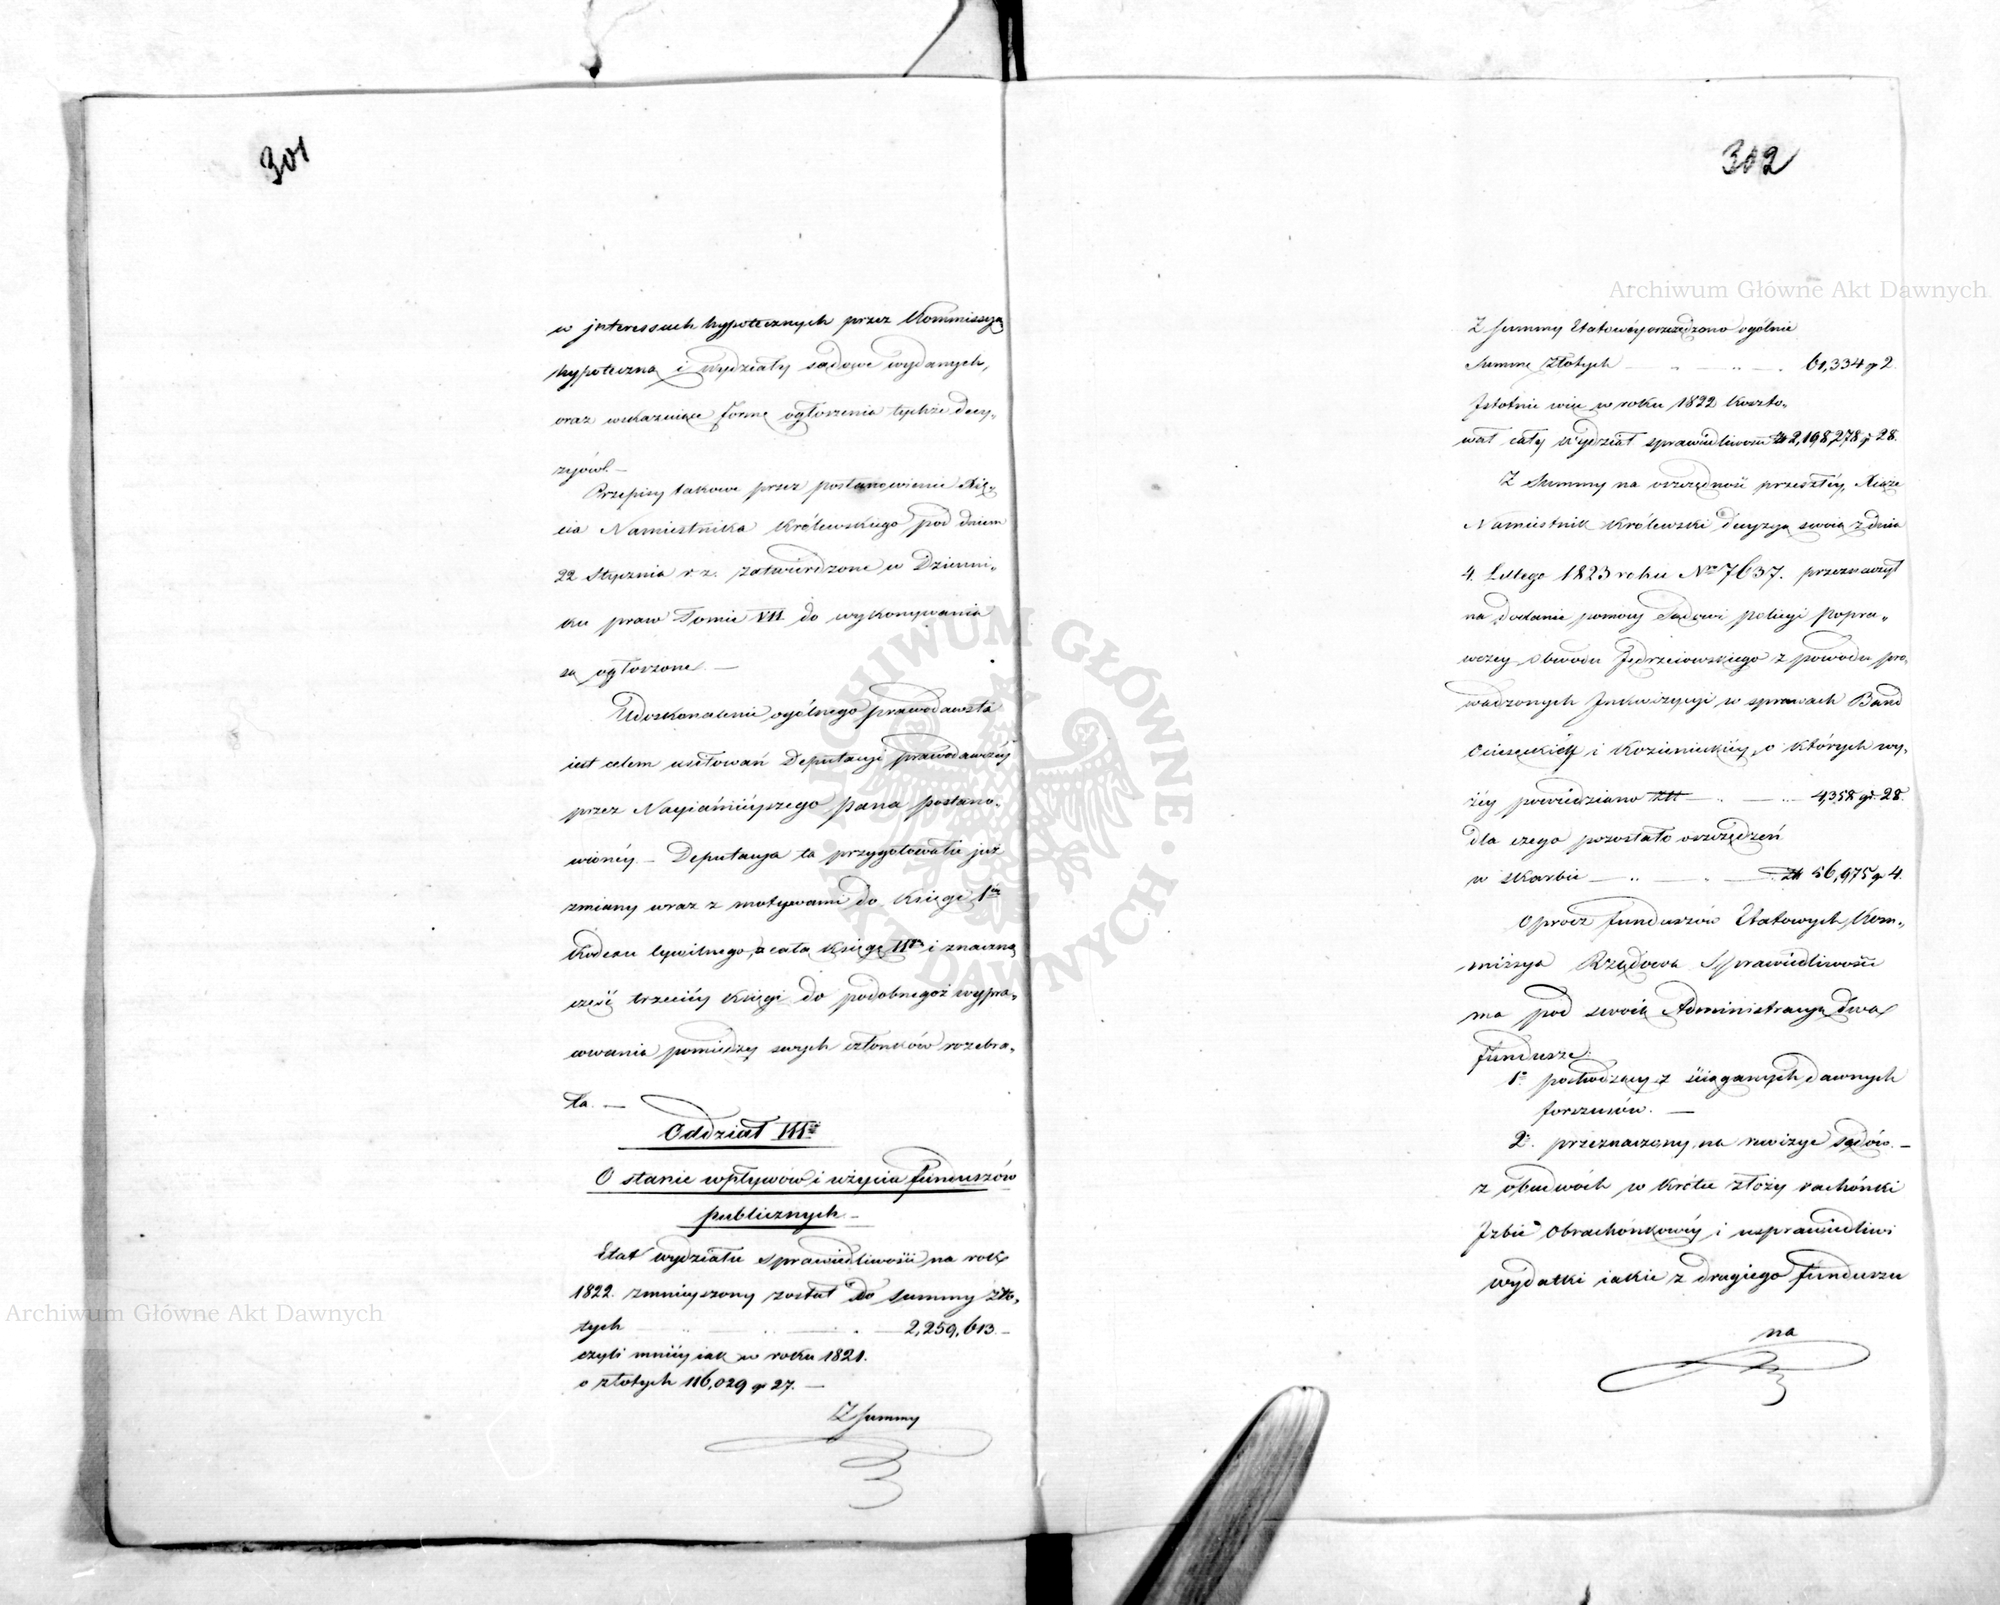 301
w jnteressach hypotecznych przez Kommissyą
hypoteczną i wydziały sądowe wydanych,
oraz wskazuiące formę ogłoszenia tychże decy„
zyów. —
Przepisy takowe przez postanowienie Xię„
cia Namiestnika Królewskiego pod dniem
22 Stycznia r. z. zatwierdzone w Dzienni„
ku praw Tomie VII do wykonywania
są ogłoszone. —
Udoskonalenie ogólnego prawodawstwa
iest celem usiłowań Deputacyi prawodawczéy
przez Nayiaśnieyszego Pana postano„
wionéy. — Deputacya ta przygotowała już
zmiany wraz z motywami do Księgi 1éy
Kodexu Cywilnego, a całą Księgę IIgą i znaczną
cześć trzeciéy Księgi do podobnegoż wypra„
cowania pomiędzy swych członków rozebra„
ła. —
Oddział III
O stanie wpływów i użycia funduszów
publicznych. —
Etat wydziału sprawiedliwości na rok
1822. zmnieyszony został do summy zło„
tych — 2,259,613. —
czyli mniéy iak w roku 1821.
o złotych 116,029 gr 27. —
Z Summy
302
Z Summy Etatowéy oszczędzono ogólnie
Summę złotych — 61,334 gr 2.
Jstotnie więc w roku 1822 koszto„
wał cały Wydział sprawiedliwości zł 2,198,278 gr 28.
Z Summy na oszczędność przeszłéy, Xiąże
Namiestnik Królewski decyzyą swoią z dnia
4. Lutego 1823 roku Nro 7637. przeznaczył
na dodanie pomocy Sądowi Policyi Popra„
wczey Obwodu Jędrzeiowskiego z powodu pro„
wadzonych Jnkwizycyi w sprawach Band
Ociesęckiéy i Kozienickiéy, o których wy„
żéy powiedziano zł — 4,358 gr 28.
dla czego pozostało oszczędzeń
w skarbie — zł 56,975 gr 4.
Oprócz funduszów Etatowych Kom„
missya Rządowa Sprawiedliwości
ma pod swoią Administracyą dwa
fundusze:
1° pochodzący z ściąganych dawnych
forszusów. —
2° przeznaczony na rewizye sądów. —
z obudwóch w krótce złoży rachónki
Jzbie Obrachónkowéy i usprawiedliwi
wydatki iakie z drugiego funduszu
na
Archiwum Główne Akt Dawnych
Archiwum Główne Akt Dawnych
ARCHIWUM GŁÓWNE · AKT DAWNYCH ·